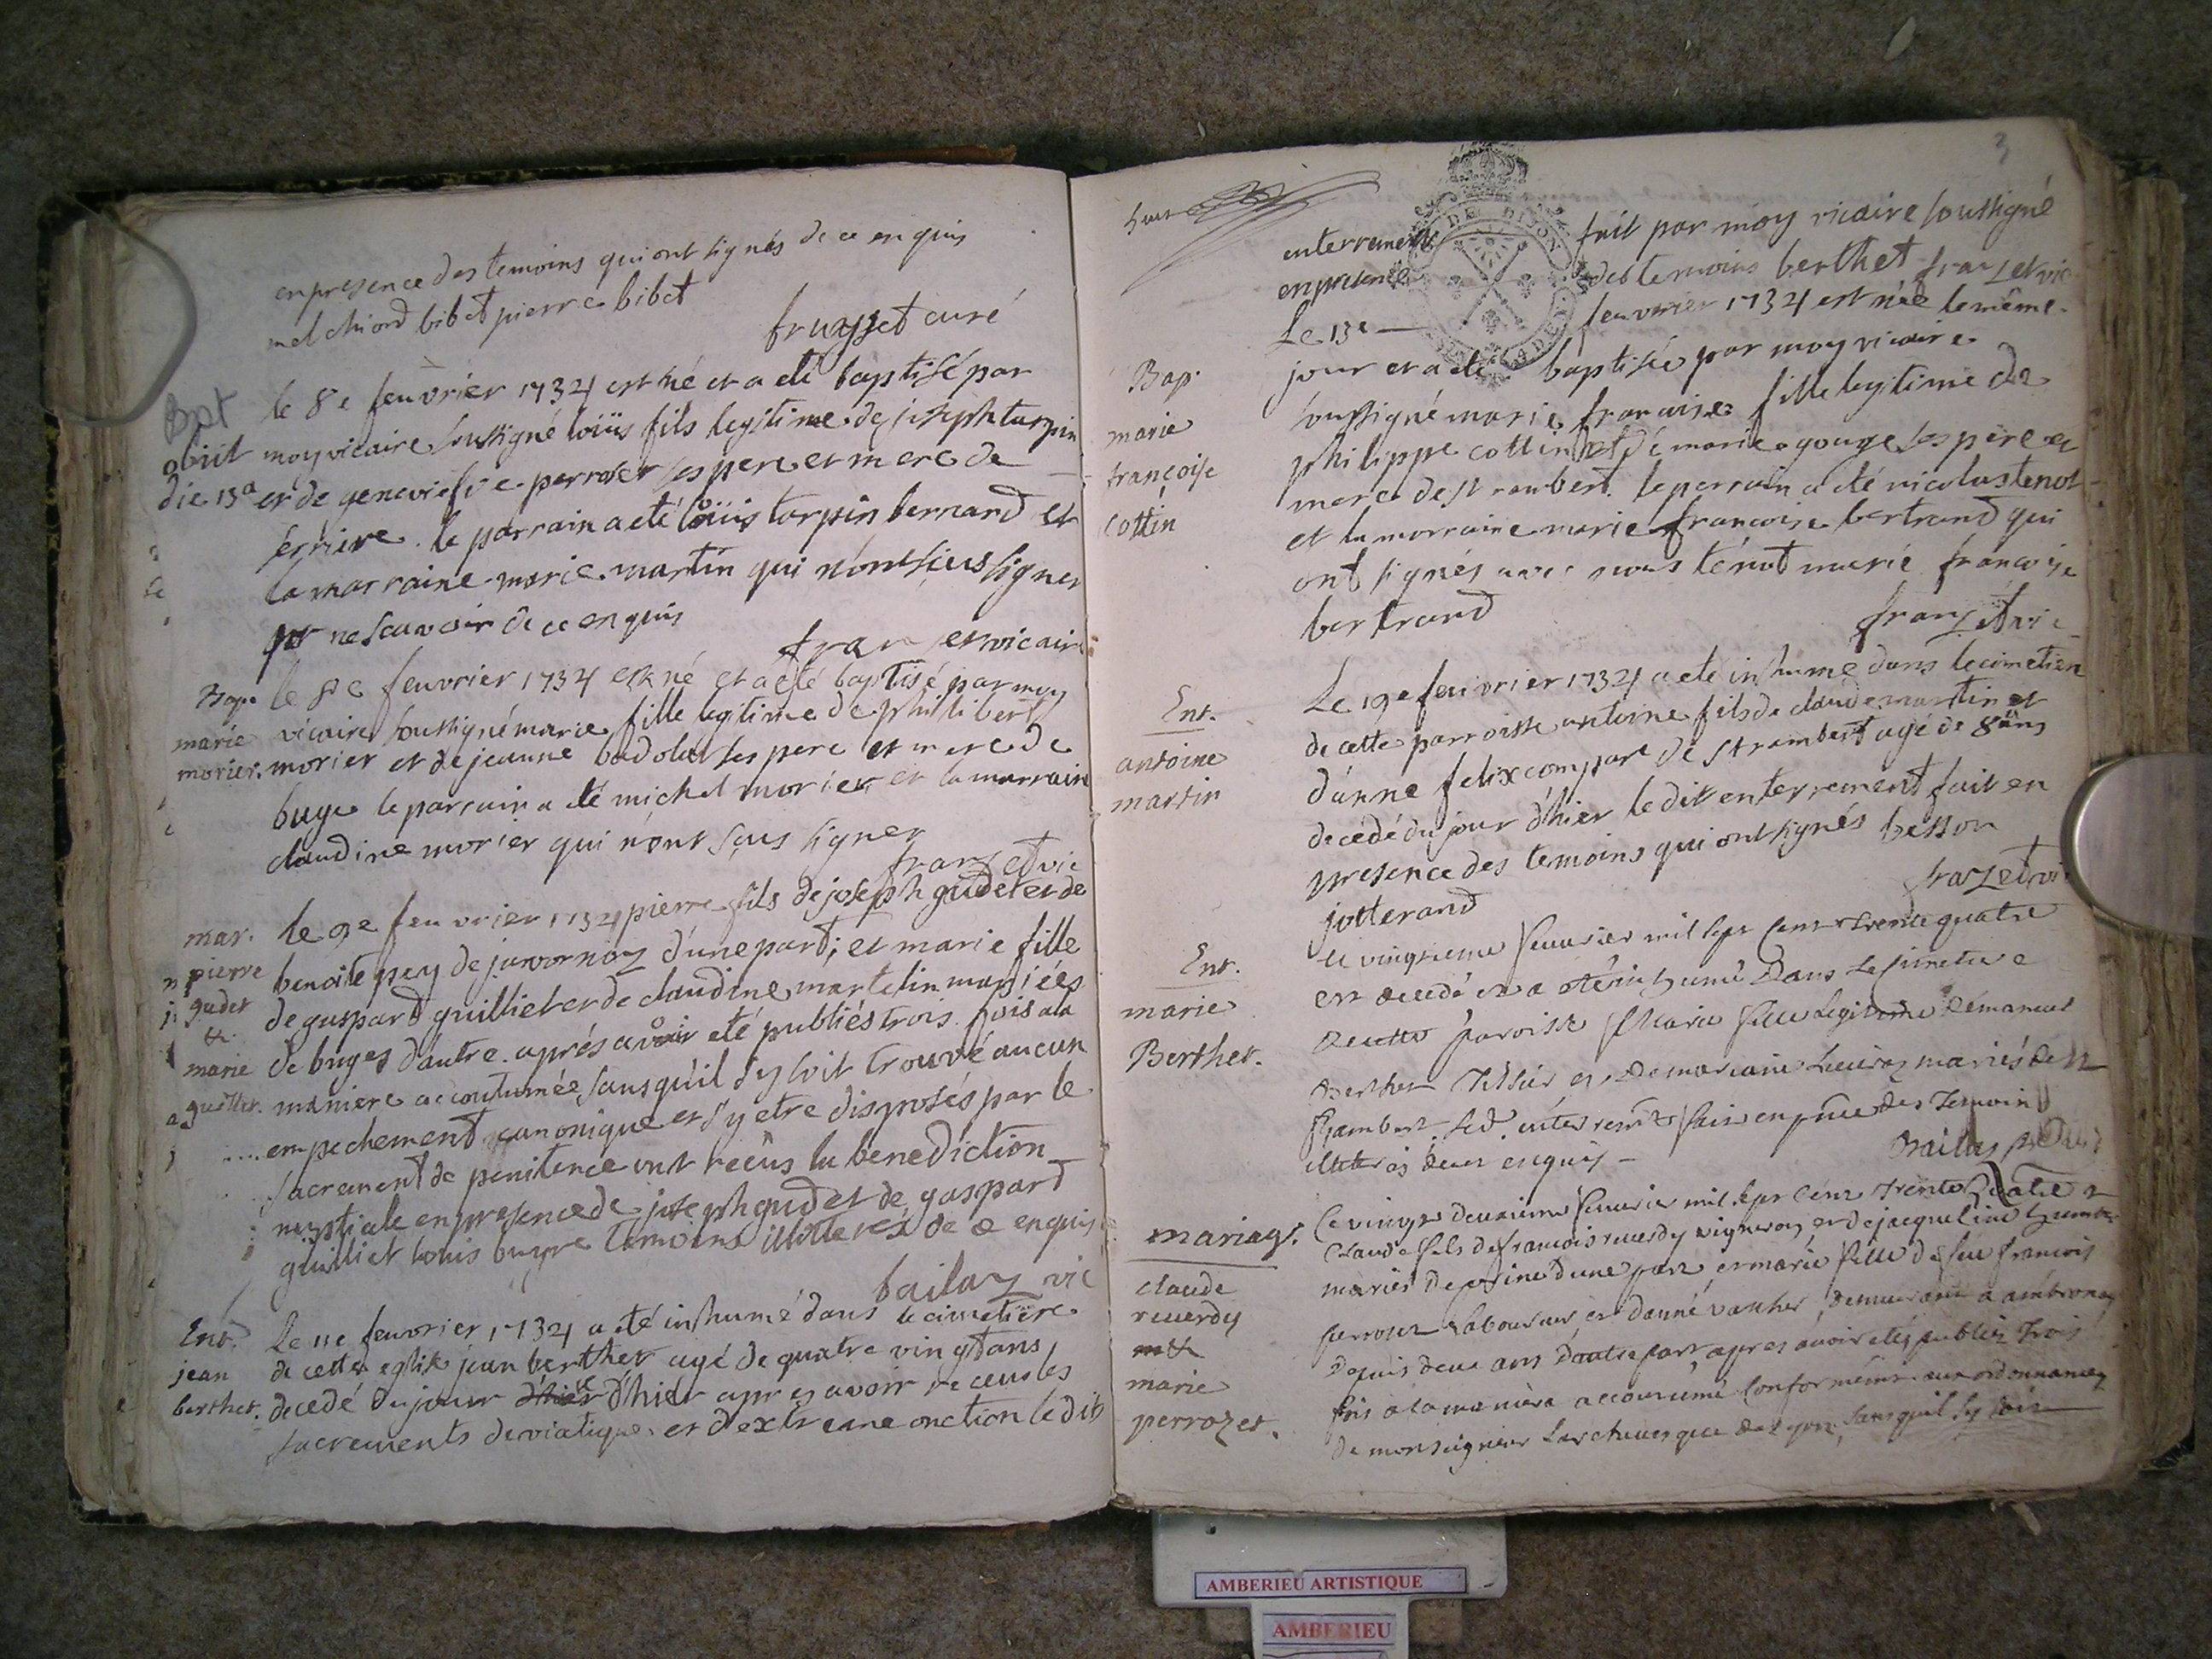 en presence des temoins qui ont signés de ce enquis
melchiord bibet pierre bibet
curé
Bpt
le 8e feuvrier 1734 est né et a eté baptisé par
obiit
moy vicaire soussigné loüis fils legitime de joseph turpin
die 13a
et de geneviefve perroset ses pere et mere de
le parrain a eté loüis torpin bernard et
la marraine marie martin qui n'ont sceus signer
ne scauvoir de ce enquis
vicaire
Bap
le 8e feuvrier 1734 est né et a eté baptisé par moy
marie
vicaire soussigné marie fille legitime de philibert
morier.
morier et de jeanne badolat ses pere et mere de
buge le parrain a eté michel morier et la marraine
claudine morier qui n'ont sçus signer
franzet vic
mar.
le 9e feuvrier 1734 pierre fils de joseph gudet et de
pierre
benoite pey de javornoz d'une part; et marie fille
gudet
de guspard guilliet et de claudine martelin mariées
&.
de buges d'autre. aprés avoir eté publiés trois fois a la
marie
maniere accoutumée sans qu'il s'y soit trouvé aucun
guilliet.
empechement canonique et s'y etre disposés par le
sacrement de penitence ont recûs la benediction
nuptiale en presence de joseph gudet de gaspard
guilliet louis temoins illitteres de ce enquis
bailaz vic
Ent.
Le 11e feuvrier 1734 a eté inhumé dans le cimetiere
jean
de cette eglise jean berthet agé de quatre vingt ans
berthet.
decedé du jour d'hier d'hier apres avoir receu les
sacrements de viatique et d'extreme onction le dit
3
enterrement fait par moy vicaire soussigné
en presence des temoins berthet franzet vic
Le 13e — feuvrier 1734 est née le même
Bap.
jour et a eté baptisée par moy vicaire
marie
soussigné marie francoise fille legitime de
françoise
philippe cottin et de marie gouge ses pere et
cottin
mere de st rambert. le parrain a eté nicolas tenot
et la marraine marie francoise bertrand qui
ont signés avec nous ténot marie francoise
bertrand
franzet vic
Ent.
Le 19e feuvrier 1734 a eté inhumé dans le cimetiere
antoine
de cette parroisse antoine fils de claude martin et
martin
d'anne felix compare de st rambert agé de 8 ans
decedé du jour d'hier le dit enterrement fait en
presence des temoins qui ont signés besson
jotterand
franzet vi
Ent.
Le vingtieme feuvrier mil sept cent trente quatre
marie
est decedé et a eté inhumé dans le cimetiere
Berthet.
de cette paroisse Marie fille legitime
Berthet et de mariés de st
Rambert. Led. enterremt fait en pnce des Temoins
de ce enquis —
mariage.
Ce vingt deuxieme feuvrier mil sept cent trente quatre
claude
Claude fils de francois reuerdy vigneron et de jacqueline
reuerdy
mariés d'une part et marie fille de feu francois
m&
perrozet laboureur et d'anne demeurant a ambronay
marie
depuis deux ans d'autre part, apres avoir etés publiés trois
perrozet.
fois a la maniere accoutumé conformément aux ordonnances
de monseigneur l'archeuesque de Lyon, sans qu'il s'y soit
AMBERIEU ARTISTIQUE
AMBERIEU